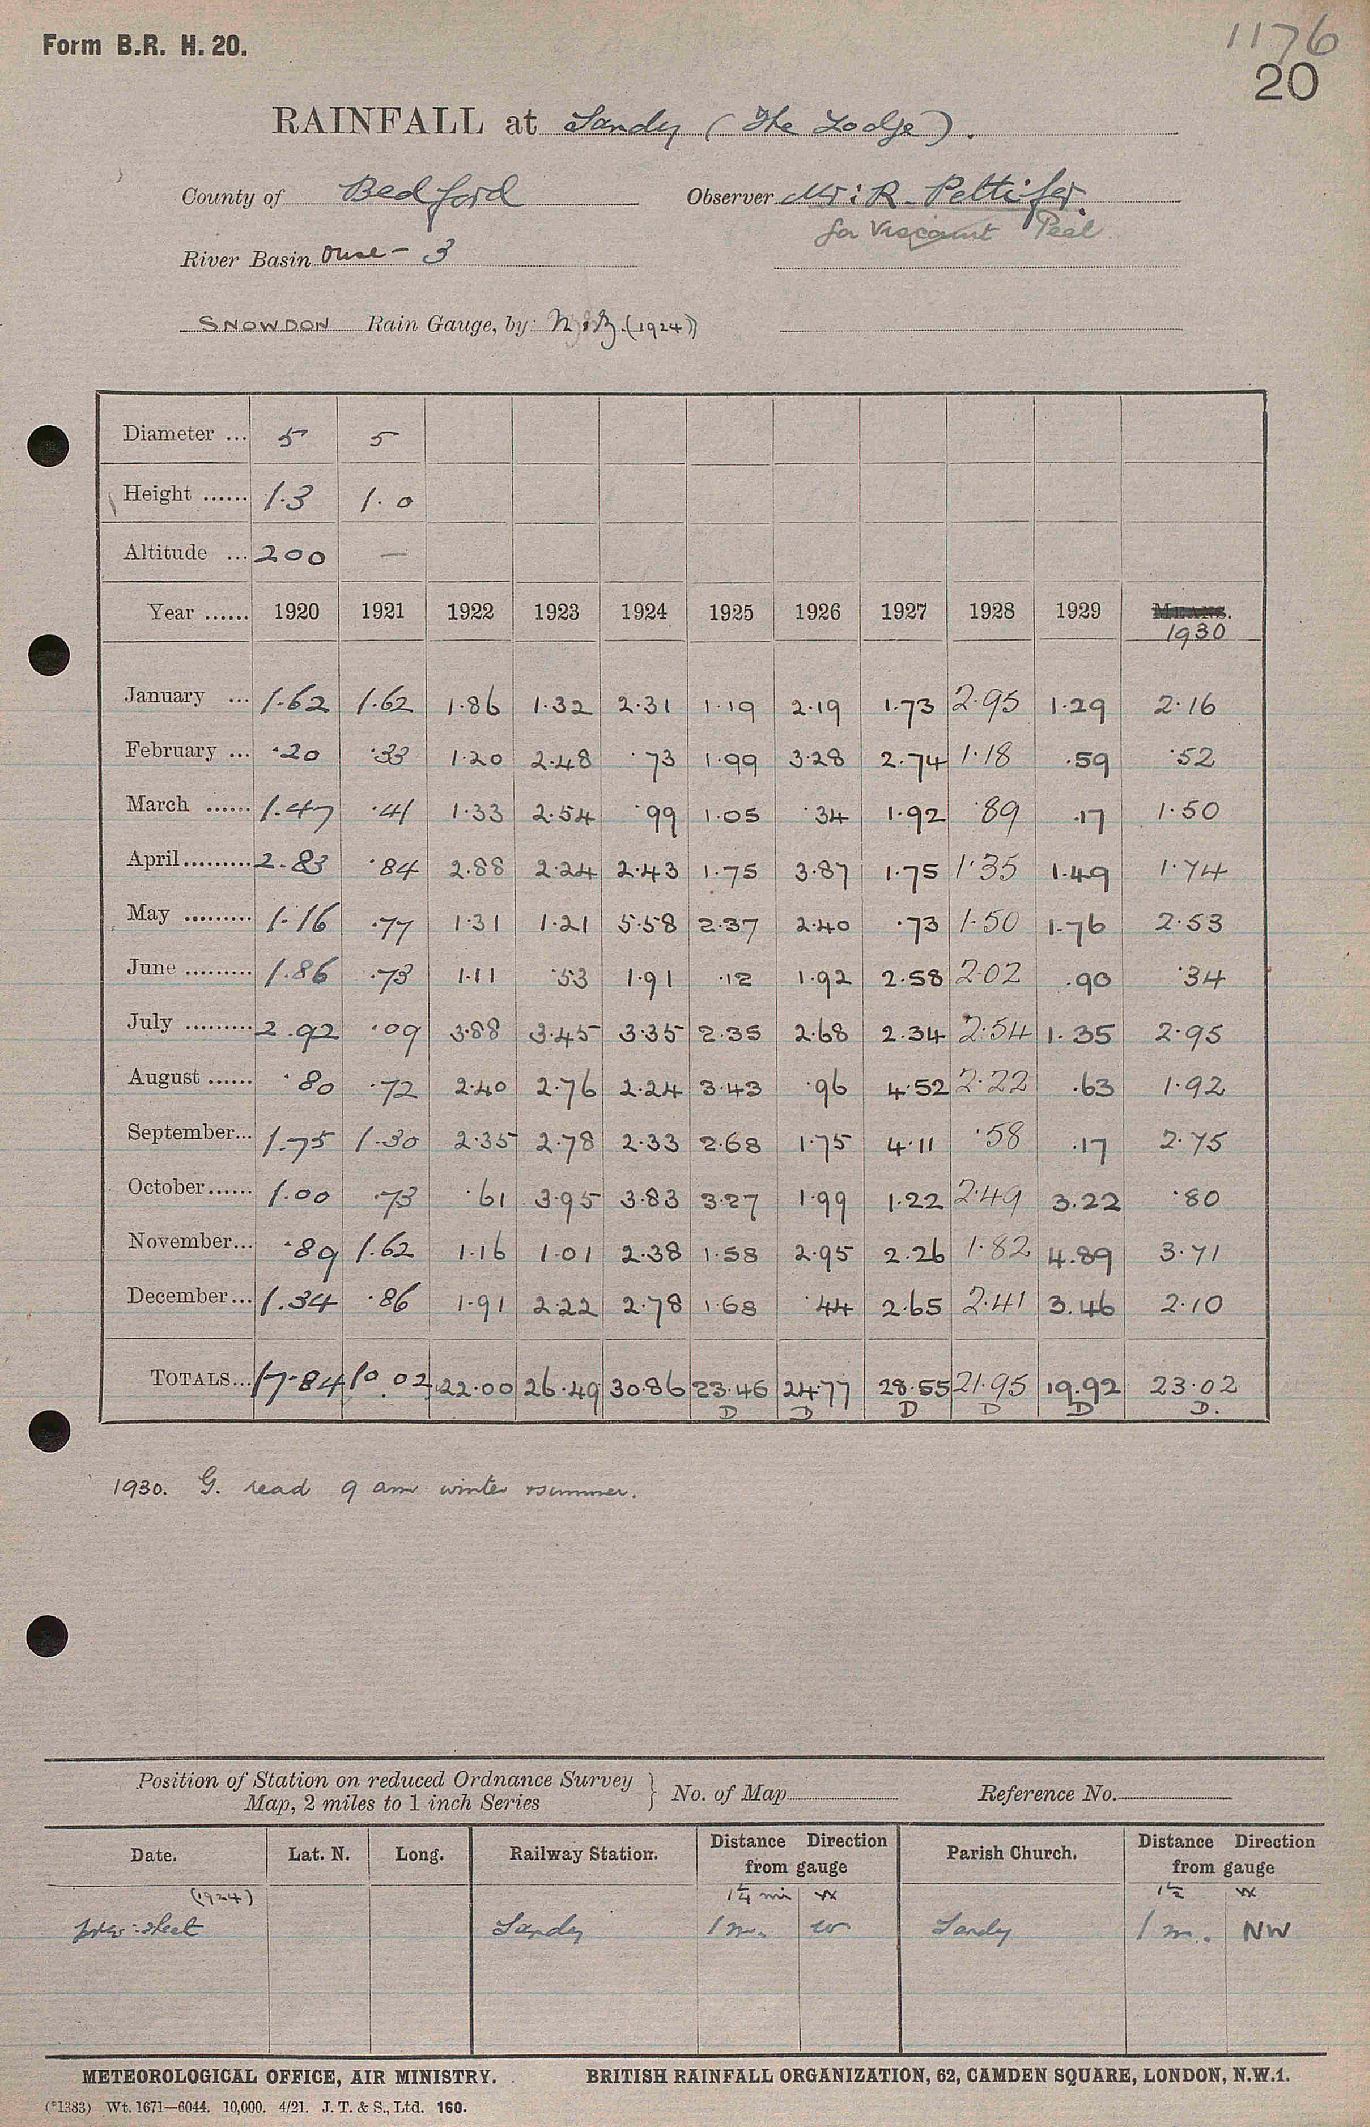 Form B.R. H. 20.
1176
20
RAINFALL at Sandy (The Lodge).
County of Bedford Observer Mr: R. Pettifer.
for Viscount Peel
River Basin Ouse - 3
SNOWDON Rain Gauge, by: N & Z. (1924)
Diameter ... 5 5
Height ...... 1.3 1.0
Altitude ... 200 —
Year ...... 1920 1921 1922 1923 1924 1925 1926 1927 1928 1929 MEANS.
1930
January ... 1.62 1.62 1.86 1.32 2.31 1.19 2.19 1.73 2.95 1.29 2.16
February ... .20 .33 1.20 2.48 .73 1.99 3.28 2.74 1.18 .59 .52
March ...... 1.47 .41 1.33 2.54 .99 1.05 .34 1.92 .89 .17 1.50
April......... 2.83 .84 2.88 2.24 2.43 1.75 3.87 1.75 1.35 1.49 1.74
May ......... 1.16 .77 1.31 1.21 5.58 2.37 2.40 .73 1.50 1.76 2.53
June ......... 1.86 .73 1.11 .53 1.91 .12 1.92 2.58 2.02 .90 .34
July ......... 2.92 .09 3.88 3.45 3.35 2.35 2.68 2.34 2.54 1.35 2.95
August ...... .80 .72 2.40 2.76 2.24 3.43 .96 4.52 2.22 .63 1.92
September... 1.75 1.30 2.35 2.78 2.33 2.68 1.75 4.11 .58 .17 2.75
October...... 1.00 .73 .61 3.95 3.83 3.27 1.99 1.22 2.49 3.22 .80
November... .89 1.62 1.16 1.01 2.38 1.58 2.95 2.26 1.82 4.89 3.71
December... 1.34 .86 1.91 2.22 2.78 1.68 .44 2.65 2.41 3.46 2.10
TOTALS... 17.84 10.02 22.00 26.49 30.86 23.46 24.77 28.55 21.95 19.92 23.02
D D D D D D.
1930. G. read 9 am winter & summer.
Position of Station on reduced Ordnance Survey
Map, 2 miles to 1 inch Series } No. of Map Reference No.
Date. Lat. N. Long. Railway Station. Distance Direction Parish Church. Distance Direction
from gauge from gauge
(1924) 1¼ mi W 1½ W
prev: sheet Sandy 1 m. W Sandy 1 m. NW
METEOROLOGICAL OFFICE, AIR MINISTRY. BRITISH RAINFALL ORGANIZATION, 62, CAMDEN SQUARE, LONDON, N.W.1.
(*1383) Wt. 1671—6044. 10,000. 4/21. J. T. & S., Ltd. 160.